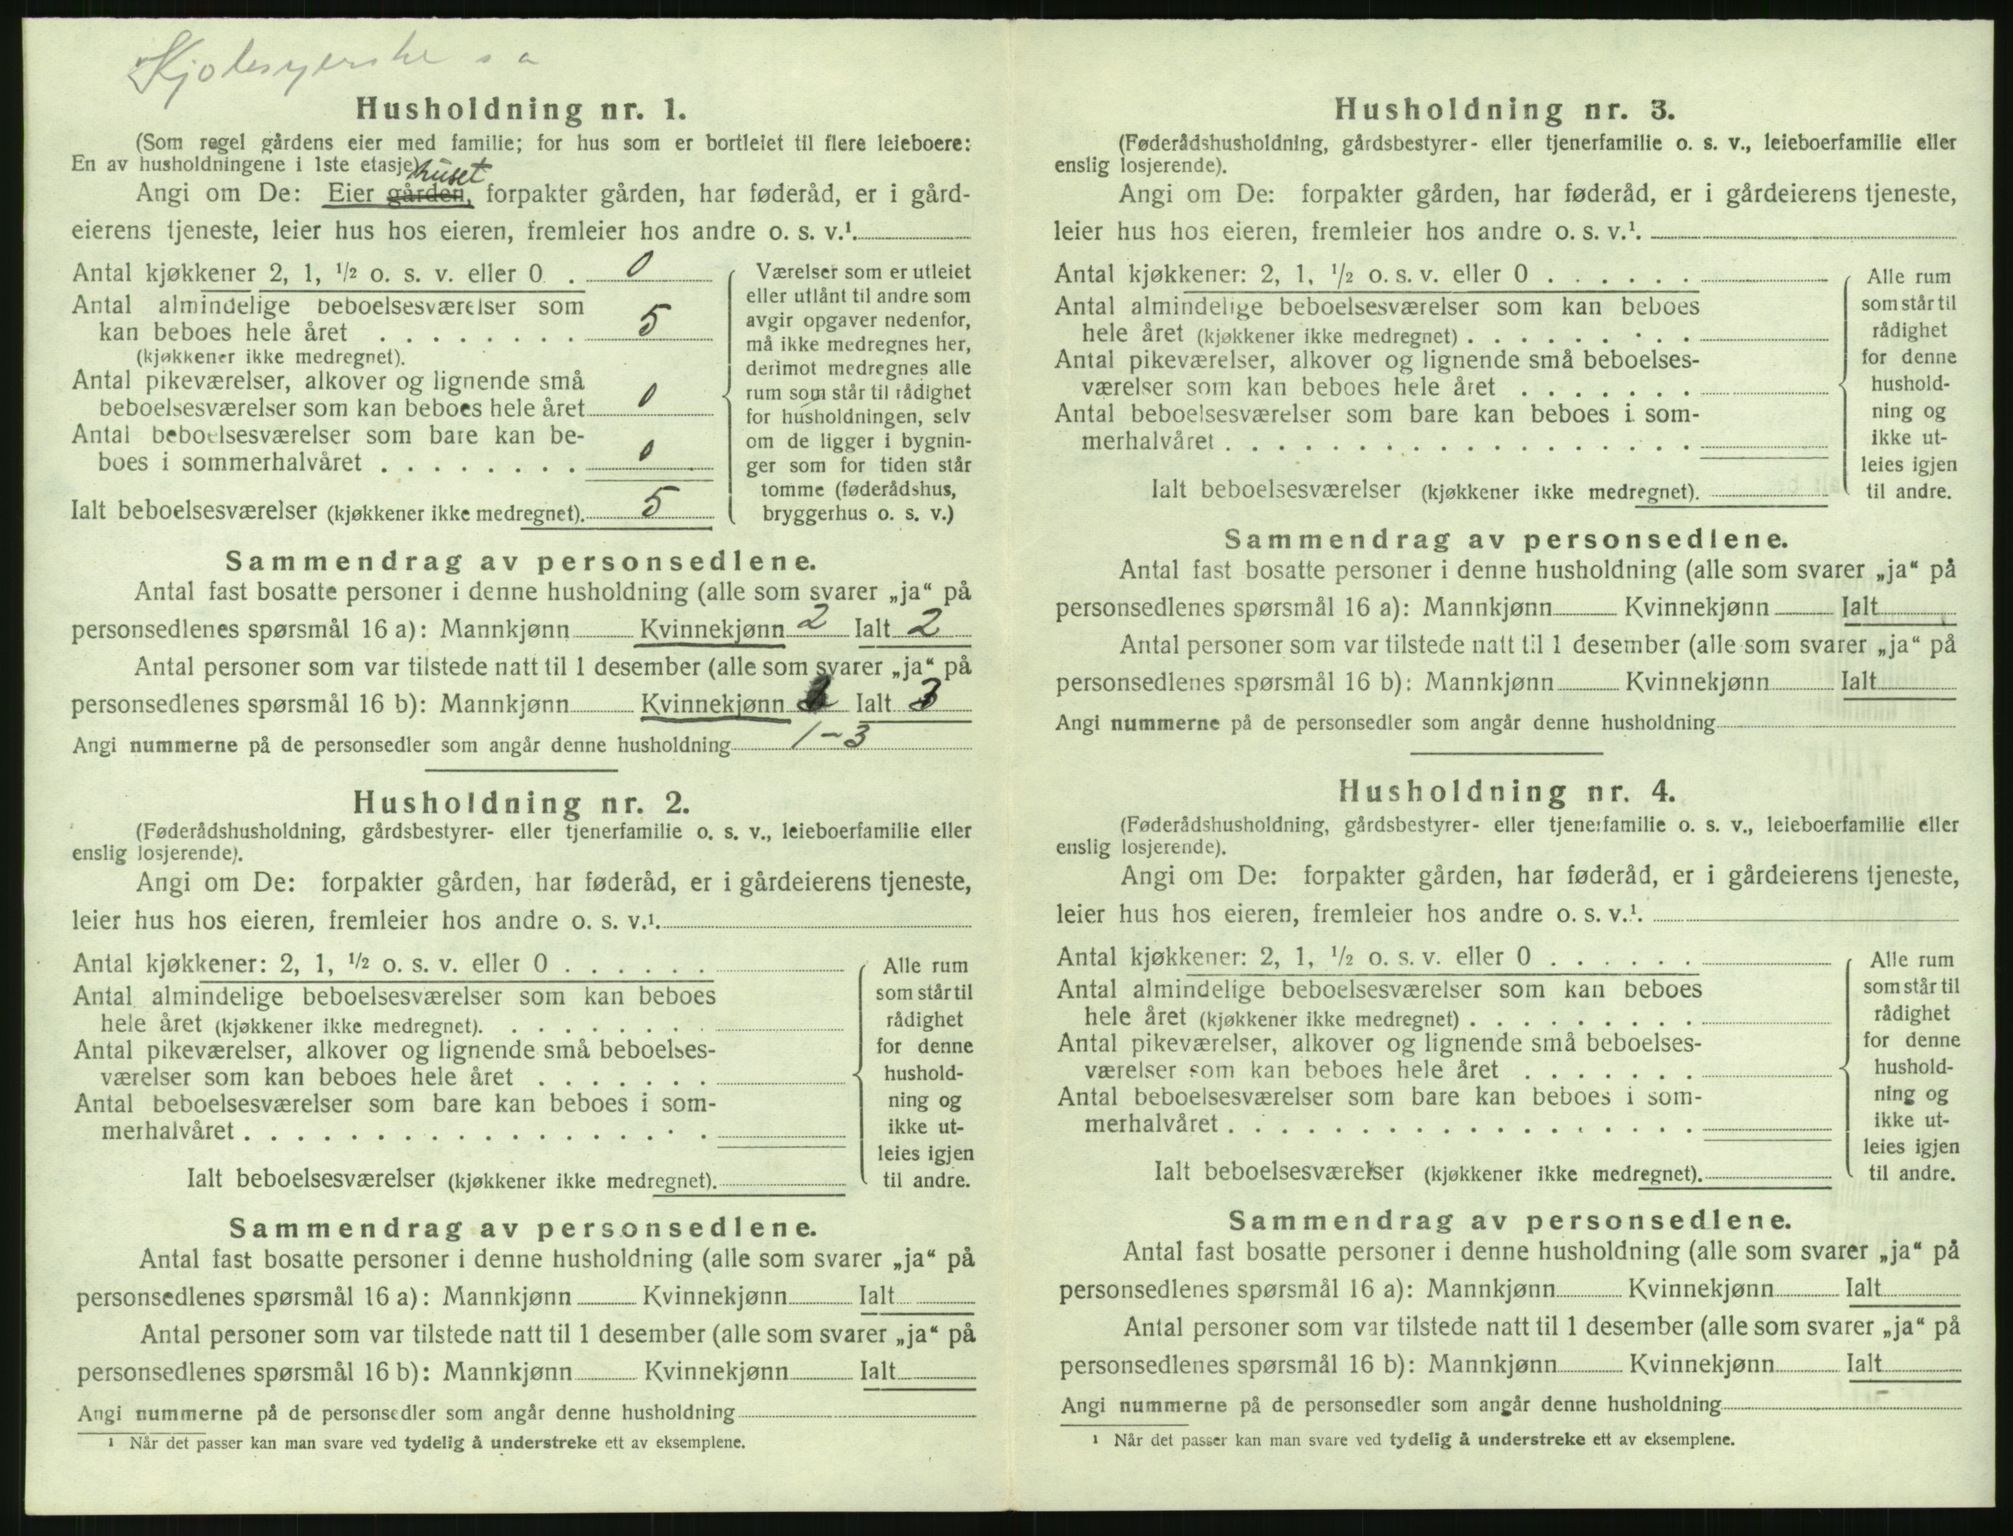 Kjolesyerske s a
Husholdning nr. 1.
(Som regel gårdens eier med familie; for hus som er bortleiet til flere leieboere:
En av husholdningene i 1ste etasje).
huset
Angi om De: Eier gården, forpakter gården, har føderåd, er i gård-
eierens tjeneste, leier hus hos eieren, fremleier hos andre o. s. v.¹.
Antal kjøkkener 2, 1, ½ o. s. v. eller 0 . 0
Antal almindelige beboelsesværelser som
kan beboes hele året . . . . . . . . 5
(kjøkkener ikke medregnet).
Antal pikeværelser, alkover og lignende små
beboelsesværelser som kan beboes hele året 0
Antal beboelsesværelser som bare kan be-
boes i sommerhalvåret . . . . . . . . 0
Ialt beboelsesværelser (kjøkkener ikke medregnet). 5
Værelser som er utleiet
eller utlånt til andre som
avgir opgaver nedenfor,
må ikke medregnes her,
derimot medregnes alle
rum som står til rådighet
for husholdningen, selv
om de ligger i bygnin-
ger som for tiden står
tomme (føderådshus,
bryggerhus o. s. v.)
Sammendrag av personsedlene.
Antal fast bosatte personer i denne husholdning (alle som svarer „ja“ på
personsedlenes spørsmål 16 a): Mannkjønn Kvinnekjønn 2 Ialt 2
Antal personer som var tilstede natt til 1 desember (alle som svarer „ja“ på
personsedlenes spørsmål 16 b): Mannkjønn Kvinnekjønn Ialt 3
Angi nummerne på de personsedler som angår denne husholdning 1-3
Husholdning nr. 2.
(Føderådshusholdning, gårdsbestyrer- eller tjenerfamilie o. s. v., leieboerfamilie eller
enslig losjerende).
Angi om De: forpakter gården, har føderåd, er i gårdeierens tjeneste,
leier hus hos eieren, fremleier hos andre o. s. v.¹.
Antal kjøkkener: 2, 1, ½ o. s. v. eller 0 . . . . . .
Antal almindelige beboelsesværelser som kan beboes
hele året (kjøkkener ikke medregnet). . . . . . . . .
Antal pikeværelser, alkover og lignende små beboelses-
værelser som kan beboes hele året . . . . . . .
Antal beboelsesværelser som bare kan beboes i som-
merhalvåret . . . . . . . . . . . . . . . . . .
Ialt beboelsesværelser (kjøkkener ikke medregnet).
Alle rum
som står til
rådighet
for denne
hushold-
ning og
ikke ut-
leies igjen
til andre.
Sammendrag av personsedlene.
Antal fast bosatte personer i denne husholdning (alle som svarer „ja“ på
personsedlenes spørsmål 16 a): Mannkjønn Kvinnekjønn Ialt
Antal personer som var tilstede natt til 1 desember (alle som svarer „ja“ på
personsedlenes spørsmål 16 b): Mannkjønn Kvinnekjønn Ialt
Angi nummerne på de personsedler som angår denne husholdning
¹ Når det passer kan man svare ved tydelig å understreke ett av eksemplene.
Husholdning nr. 3.
(Føderådshusholdning, gårdsbestyrer- eller tjenerfamilie o. s. v., leieboerfamilie eller
enslig losjerende).
Angi om De: forpakter gården, har føderåd, er i gårdeierens tjeneste,
leier hus hos eieren, fremleier hos andre o. s. v.¹.
Antal kjøkkener: 2, 1, ½ o. s. v. eller 0 . . . . . .
Antal almindelige beboelsesværelser som kan beboes
hele året (kjøkkener ikke medregnet) . . . . . . . . .
Antal pikeværelser, alkover og lignende små beboelses-
værelser som kan beboes hele året . . . . . . .
Antal beboelsesværelser som bare kan beboes i som-
merhalvåret . . . . . . . . . . . . . . . . . .
Ialt beboelsesværelser (kjøkkener ikke medregnet).
Alle rum
som står til
rådighet
for denne
hushold-
ning og
ikke ut-
leies igjen
til andre.
Sammendrag av personsedlene.
Antal fast bosatte personer i denne husholdning (alle som svarer „ja“ på
personsedlenes spørsmål 16 a): Mannkjønn Kvinnekjønn Ialt
Antal personer som var tilstede natt til 1 desember (alle som svarer „ja“ på
personsedlenes spørsmål 16 b): Mannkjønn Kvinnekjønn Ialt
Angi nummerne på de personsedler som angår denne husholdning
Husholdning nr. 4.
(Føderådshusholdning, gårdsbestyrer- eller tjenerfamilie o. s. v., leieboerfamilie eller
enslig losjerende).
Angi om De: forpakter gården, har føderåd, er i gårdeierens tjeneste,
leier hus hos eieren, fremleier hos andre o. s. v.¹.
Antal kjøkkener: 2, 1, ½ o. s. v. eller 0 . . . . . .
Antal almindelige beboelsesværelser som kan beboes
hele året (kjøkkener ikke medregnet) . . . . . . . . .
Antal pikeværelser, alkover og lignende små beboelses-
værelser som kan beboes hele året . . . . . . .
Antal beboelsesværelser som bare kan beboes i som-
merhalvåret . . . . . . . . . . . . . . . . . .
Ialt beboelsesværelser (kjøkkener ikke medregnet).
Alle rum
som står til
rådighet
for denne
hushold-
ning og
ikke ut-
leies igjen
til andre.
Sammendrag av personsedlene.
Antal fast bosatte personer i denne husholdning (alle som svarer „ja“ på
personsedlenes spørsmål 16 a): Mannkjønn Kvinnekjønn Ialt
Antal personer som var tilstede natt til 1 desember (alle som svarer „ja“ på
personsedlenes spørsmål 16 b): Mannkjønn Kvinnekjønn Ialt
Angi nummerne på de personsedler som angår denne husholdning
¹ Når det passer kan man svare ved tydelig å understreke ett av eksemplene.